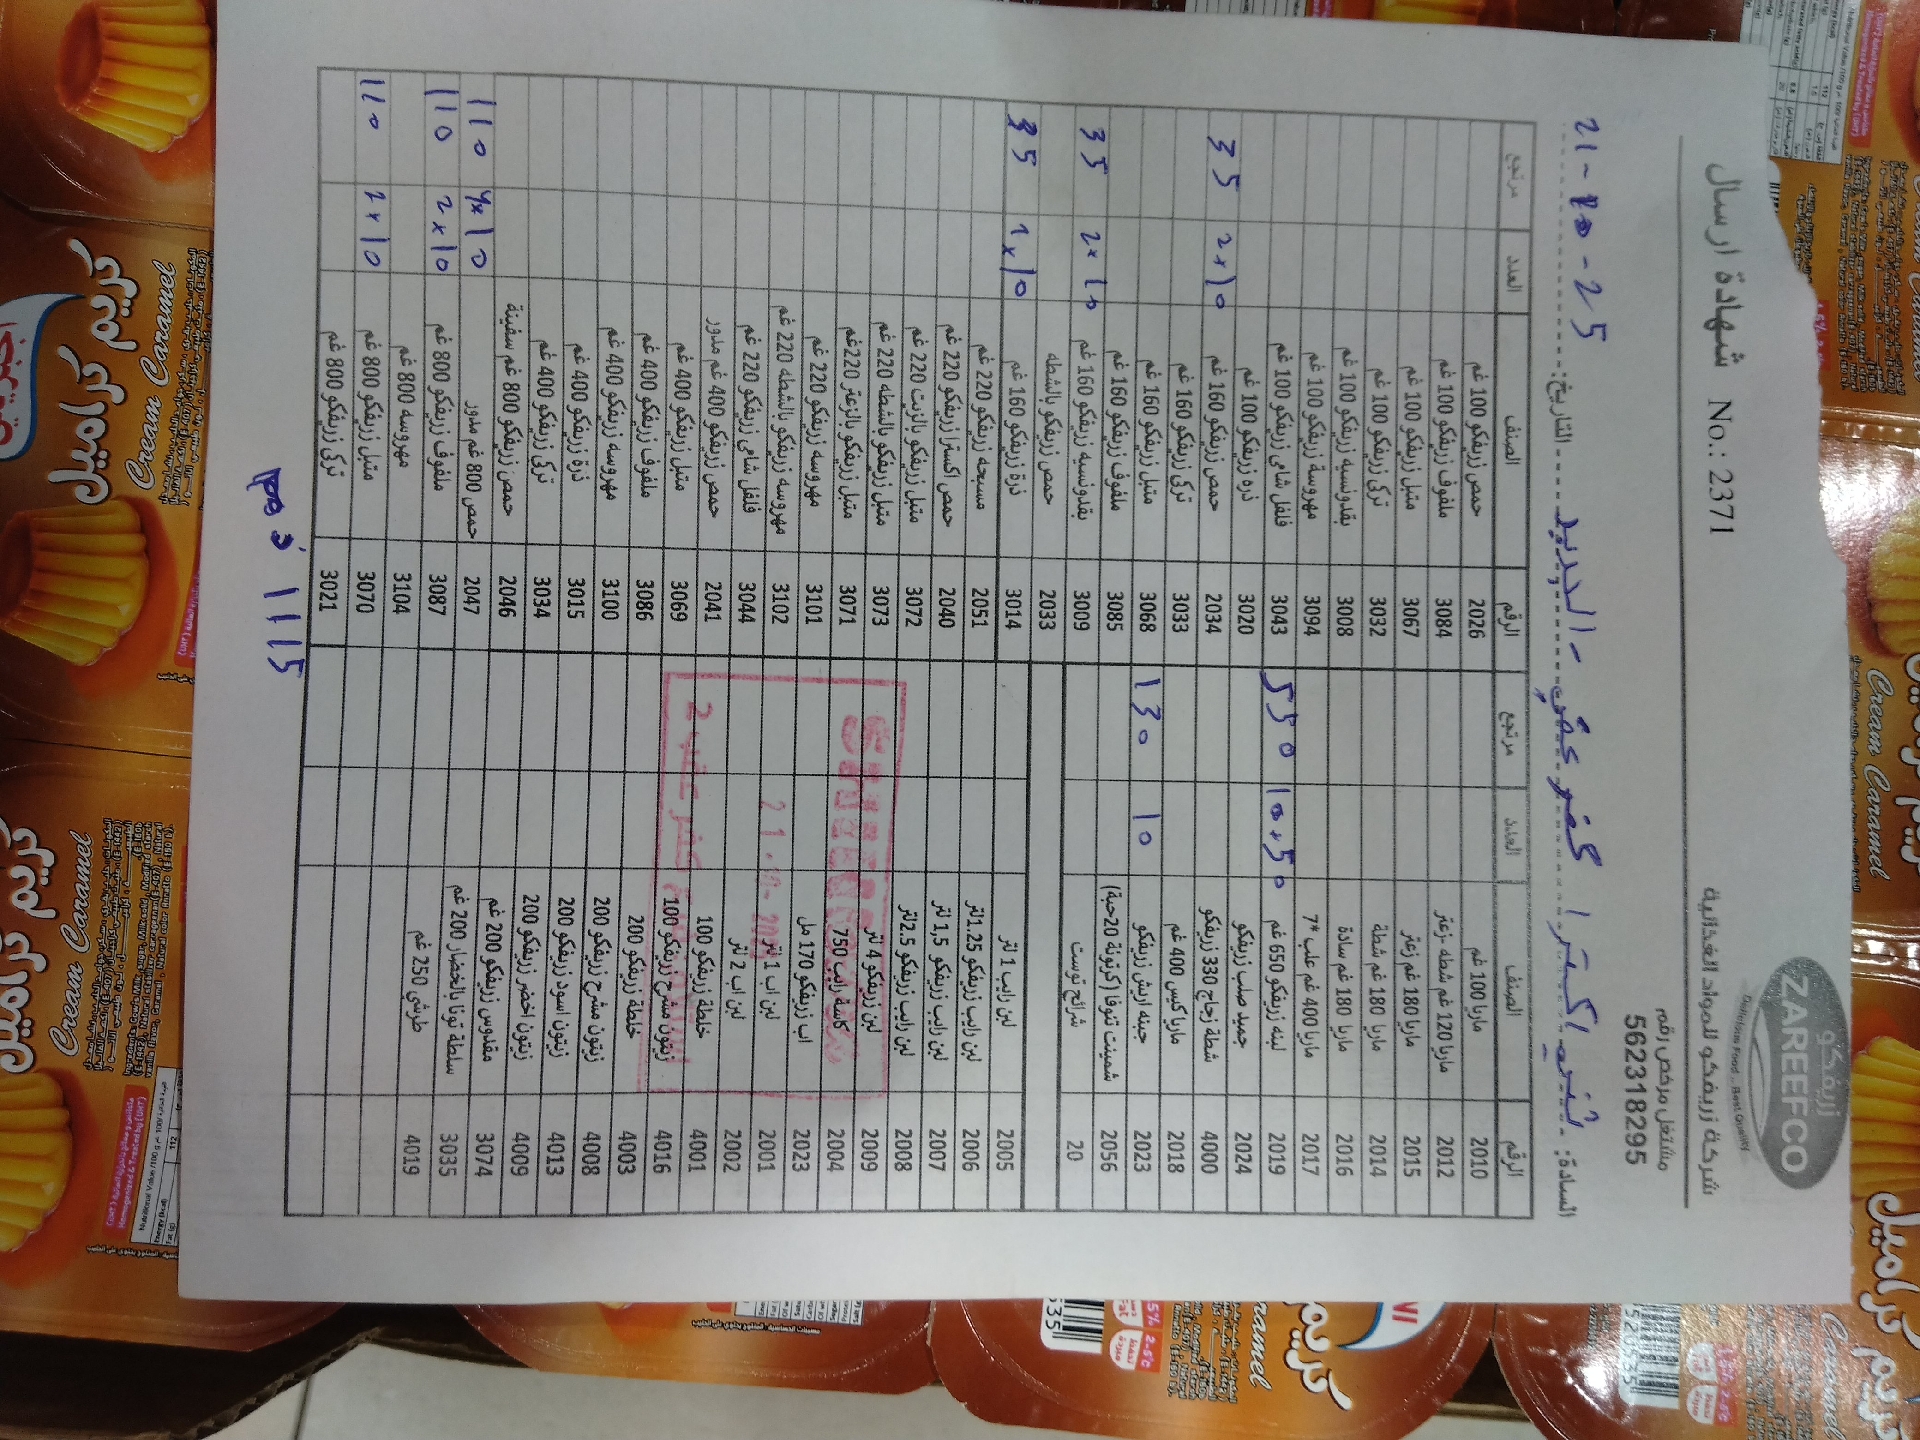 زريفكو
ZAREEFCO
Delicious Food .. Best Quality
شركة زريفكو للمواد الغذائية
مشتغل مرخص رقم
562318295
شهادة ارسال No.: 2371
السادة: اكسترا كفر عقب - الجديد التاريخ: 21-10-25
الرقم الصنف العدد مرتجع الرقم الصنف العدد مرتجع
2010 ماريا 100 غم 2026 حمص زريفكو 100 غم
2012 ماريا 120 غم شطة +زعتر 3084 ملفوف زريفكو 100 غم
2015 ماريا 180 غم زعتر 3067 متبل زريفكو 100 غم
2014 ماريا 180 غم شطة 3032 تركي زريفكو 100 غم
2016 ماريا 180 غم سادة 3008 بقدونسيه زريفكو 100 غم
2017 ماريا 400 غم علب *7 3094 مهروسة زريفكو 100 غم
2019 لبنه زريفكو 650 غم 10,50 550 3043 فلفل شامي زريفكو 100 غم
2024 جميد صلب زريفكو 3020 ذره زريفكو 100 غم
4000 شطة زجاج 330 زريفكو 2034 حمص زريفكو 160 غم 2×10 35
2018 ماريا كيس 400 غم 3033 تركي زريفكو 160 غم
2023 جبنه اريش زريفكو 10 130 3068 متبل زريفكو 160 غم
2056 شمينت تنوفا (كرتونة 20حبة) 3085 ملفوف زريفكو 160 غم
20 شرائح توست 3009 بقدونسيه زريفكو 160 غم 2×10 35
2033 حمص زريفكو بالشطه
2005 لبن رايب 1 لتر 3014 ذرة زريفكو 160 غم 1×10 35
2006 لبن رايب زريفكو 1.25لتر 2051 مسبحه زريفكو 220 غم
2007 لبن رايب زريفكو 1,5 لتر 2040 حمص اكسترا زريفكو 220 غم
2008 لبن رايب زريفكو 2.5لتر 3072 متبل زريفكو بالزيت 220 غم
2009 لبن زريفكو 4 لتر 3073 متبل زريفكو بالشطه 220 غم
2004 كاسة رايب 750 غم 3071 متبل زريفكو بالزعتر 220غم
2023 اب زريفكو 170 مل 3101 مهروسه زريفكو 220 غم
2001 لبن اب 1 لتر 3102 مهروسه زريفكو بالشطه 220 غم
2002 لبن اب 2 لتر 3044 فلفل شامي زريفكو 220 غم
4001 خلطة زريفكو 100 2041 حمص زريفكو 400 غم مدور
4016 زيتون مشرح زريفكو 100 3069 متبل زريفكو 400 غم
4003 خلطة زريفكو 200 3086 ملفوف زريفكو 400 غم
4008 زيتون مشرح زريفكو 200 3100 مهروسه زريفكو 400 غم
4013 زيتون اسود زريفكو 200 3015 ذرة زريفكو 400 غم
4009 زيتون اخضر زريفكو 200 3034 تركي زريفكو 400 غم
3074 مقدوس زريفكو 200 غم 2046 حمص زريفكو 800 غم سفينة
3035 سلطة تونا بالخضار 200 غم 2047 حمص 800 غم مدور 4×10 110
4019 طرشي 250 غم 3087 ملفوف زريفكو 800 غم 2×10 110
3104 مهروسه 800 غم
3070 متبل زريفكو 800 غم 2×10 110
3021 تركي زريفكو 800 غم
1115
كفر عقب 2
كريم كراميل
Cream Caramel
كريم كراميل
Cream Caramel